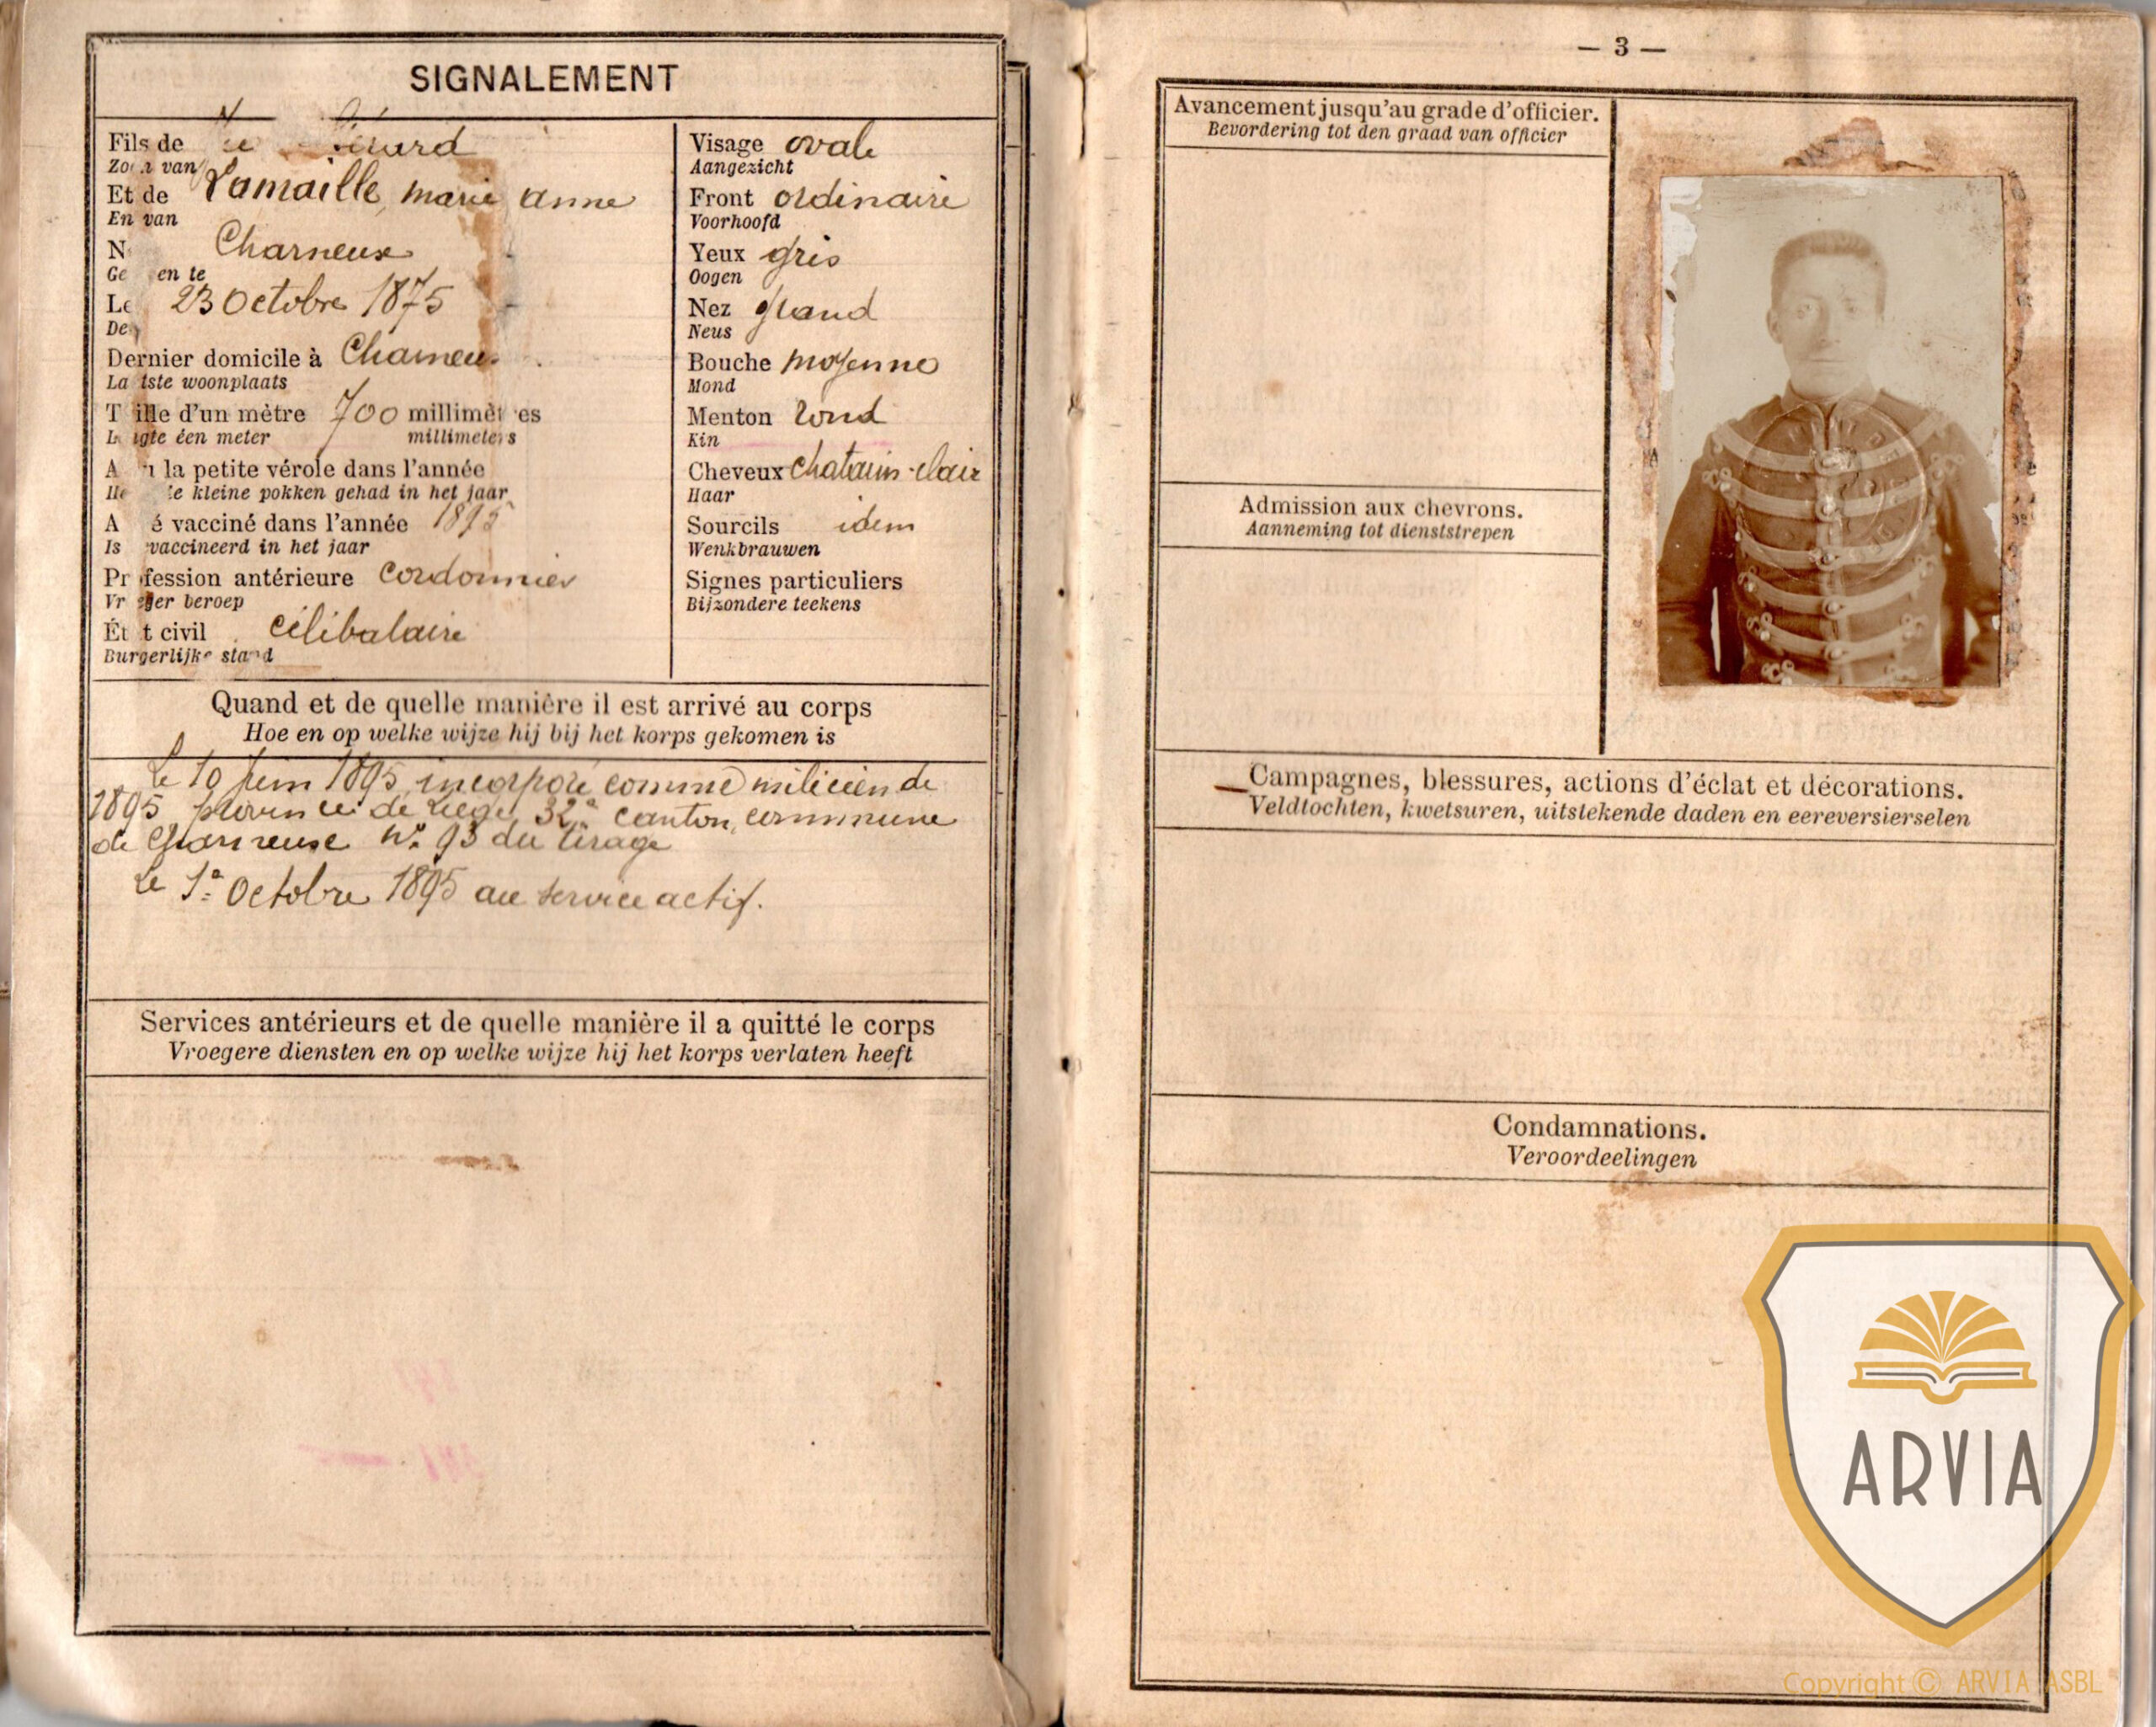 SIGNALEMENT
Fils de
Zoon van
Et de Lamaille, marie anne
En van
N Charneux
Ge en te
Le 23 Octobre 1875
Den
Dernier domicile à Charneux
Laatste woonplaats
Taille d'un mètre 700 millimètres
Lengte éen meter millimeters
A eu la petite vérole dans l'année
Heeft de kleine pokken gehad in het jaar
A été vacciné dans l'année 1895
Is gevaccineerd in het jaar
Profession antérieure Cordonnier
Vroeger beroep
État civil célibataire
Burgerlijke stand
Visage ovale
Aangezicht
Front ordinaire
Voorhoofd
Yeux gris
Oogen
Nez grand
Neus
Bouche moyenne
Mond
Menton rond
Kin
Cheveux chatain-clair
Haar
Sourcils idem
Wenkbrauwen
Signes particuliers
Bijzondere teekens
Quand et de quelle manière il est arrivé au corps
Hoe en op welke wijze hij bij het korps gekomen is
Le 10 Juin 1895 incorporé comme milicien de
1895 province de Liège, 32e canton, commune
de Charneux No 93 du tirage
Le 1e Octobre 1895 au service actif.
Services antérieurs et de quelle manière il a quitté le corps
Vroegere diensten en op welke wijze hij het korps verlaten heeft
— 3 —
Avancement jusqu'au grade d'officier.
Bevordering tot den graad van officier
Admission aux chevrons.
Aanneming tot dienststrepen
Campagnes, blessures, actions d'éclat et décorations.
Veldtochten, kwetsuren, uitstekende daden en eereversierselen
Condamnations.
Veroordeelingen
ARVIA
Copyright © ARVIA ASBL